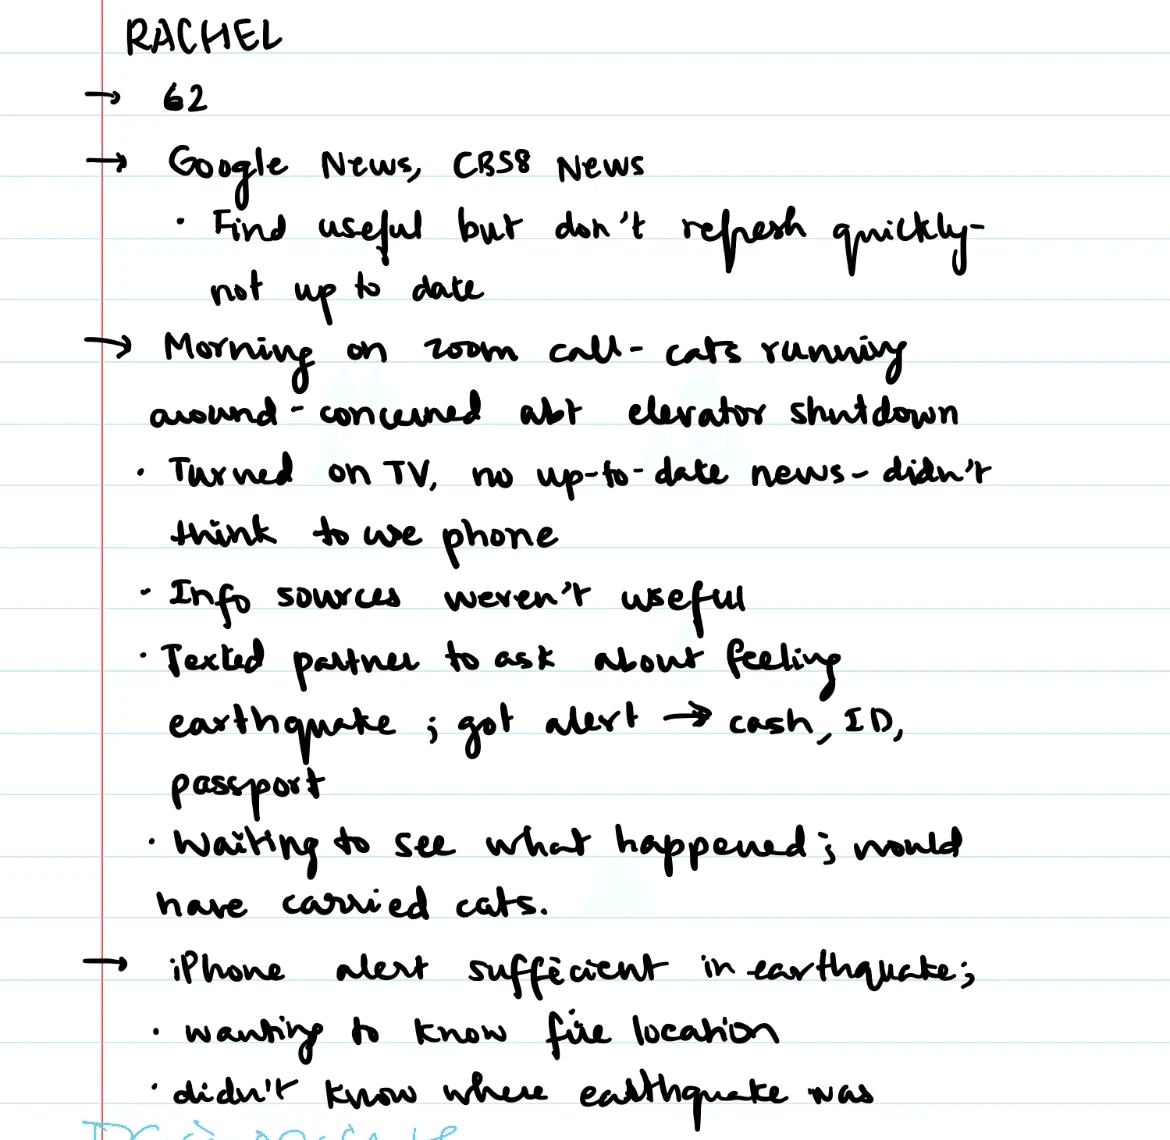 RACHEL
→ 62
→ Google News, CBS8 News
· Find useful but don't refresh quickly-
not up to date
→ Morning on zoom call - cats running
around - concerned abt elevator shutdown
· Turned on TV, no up-to-date news - didn't
think to use phone
· Info sources weren't useful
· Texted partner to ask about feeling
earthquake ; got alert → cash, ID,
passport
· Waiting to see what happened ; would
have carried cats.
→ iPhone alert sufficient in earthquake;
· wanting to know fire location
· didn't know where earthquake was